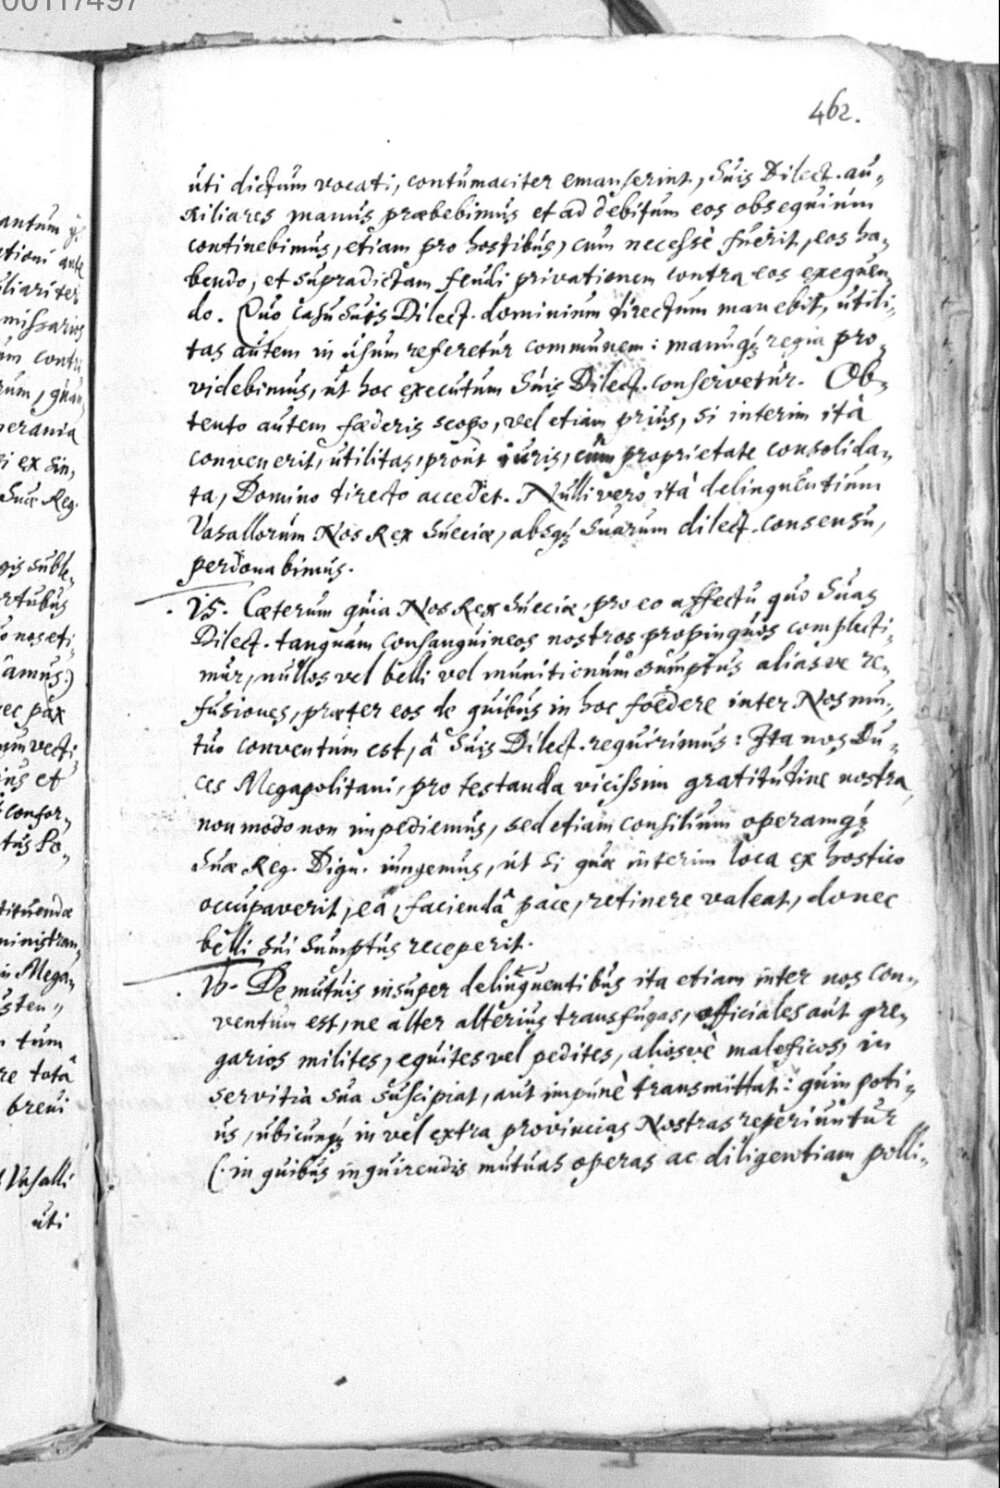 00117497
462.
uti dictum vocati, contumaciter emanserint, Suis Dilect. au-
xiliares manus præbebimus et ad debitum eos obsequium
continebimus, etiam pro hostibus, cum necesse fuerit, eos ha-
bendo, et supradictam feudi privationem contra eos exequen-
do. Quo casu Suis Dilect. dominium directum manebit, utili-
tas autem in usum referetur communem: manuq; regia pro-
videbimus, ut hoc executum Suis Dilect. conservetur. Ob-
tento autem fæderis scopo, vel etiam prius, si interim ità
convenerit, utilitas, prout iuris, cum proprietate consolida-
ta, Domino directo accedet. Nulli verò ità delinquentium
Vasallorum Nos Rex Sueciæ, absq; Suarum dilect. consensu,
perdonabimus.
15. Cæterum quia Nos Rex Sueciæ, pro eo affectu quo Suas
Dilect. tanquam consanguineos nostros propinquos complecti-
mur, nullos vel belli vel munitionum sumptus aliasve re-
fusiones, præter eos de quibus in hoc foedere inter Nos mu-
tuo conventum est, â Suis Dilect. requirimus: Ita nos Du-
ces Megapolitani, pro testanda vicissim gratitudine nostra,
non modo non impediemus, sed etiam consilium operamq;
Suæ Reg. Dign. iungemus, ut si quæ interim loca ex hostico
occupaverit, eâ, faciendâ pace, retinere valeat, donec
belli sui sumptus receperit.
16. De mutuis insuper delinquentibus ita etiam inter nos con-
ventum est, ne alter alterius transfugas, officiales aut gre-
garios milites, equites vel pedites, aliosvè maleficos, in
servitia sua suscipiat, aut impunè transmittat: quin poti-
us, ubicunq; in vel extra provincias Nostras reperiuntur
(: in quibus inquirendis mutuas operas ac diligentiam polli-